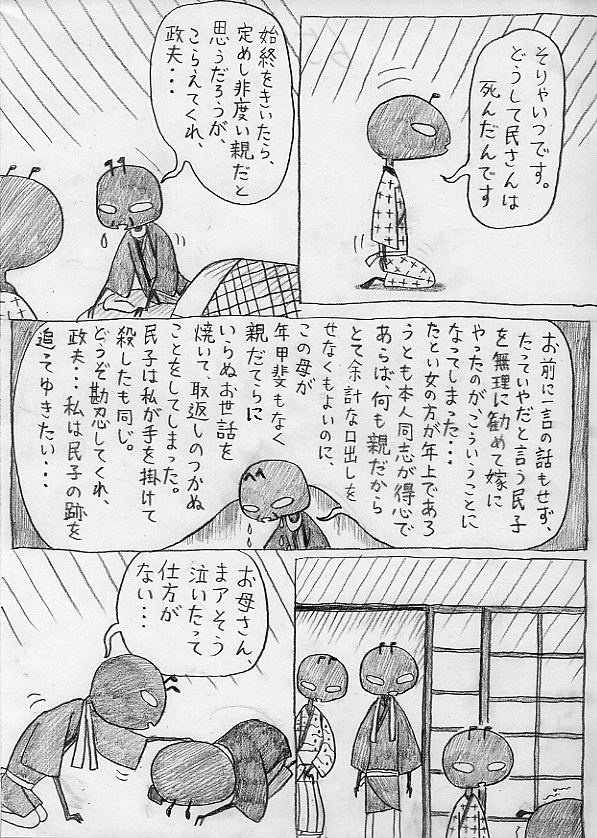 そりゃいつです。
どうして民さんは
死んだんです
始終をきいたら、
定めし非度い親だと
思うだろうが、
こらえてくれ、
政夫・・・
お前に一言の話もせず、
たっていやだと言う民子
を無理に勧めて嫁に
やったのが、こういうことに
なってしまった・・・
たとい女の方が年上であろ
うとも本人同志が得心で
あらば、何も親だから
とて余計な口出しを
せなくもよいのに、
この母が
年甲斐もなく
親だてらに
いらぬお世話を
焼いて、取返しのつかぬ
ことをしてしまった。
民子は私が手を掛けて
殺したも同じ。
どうぞ勘忍してくれ、
政夫・・・私は民子の跡を
追ってゆきたい・・・
お母さん、
まアそう
泣いたって
仕方が
ない・・・